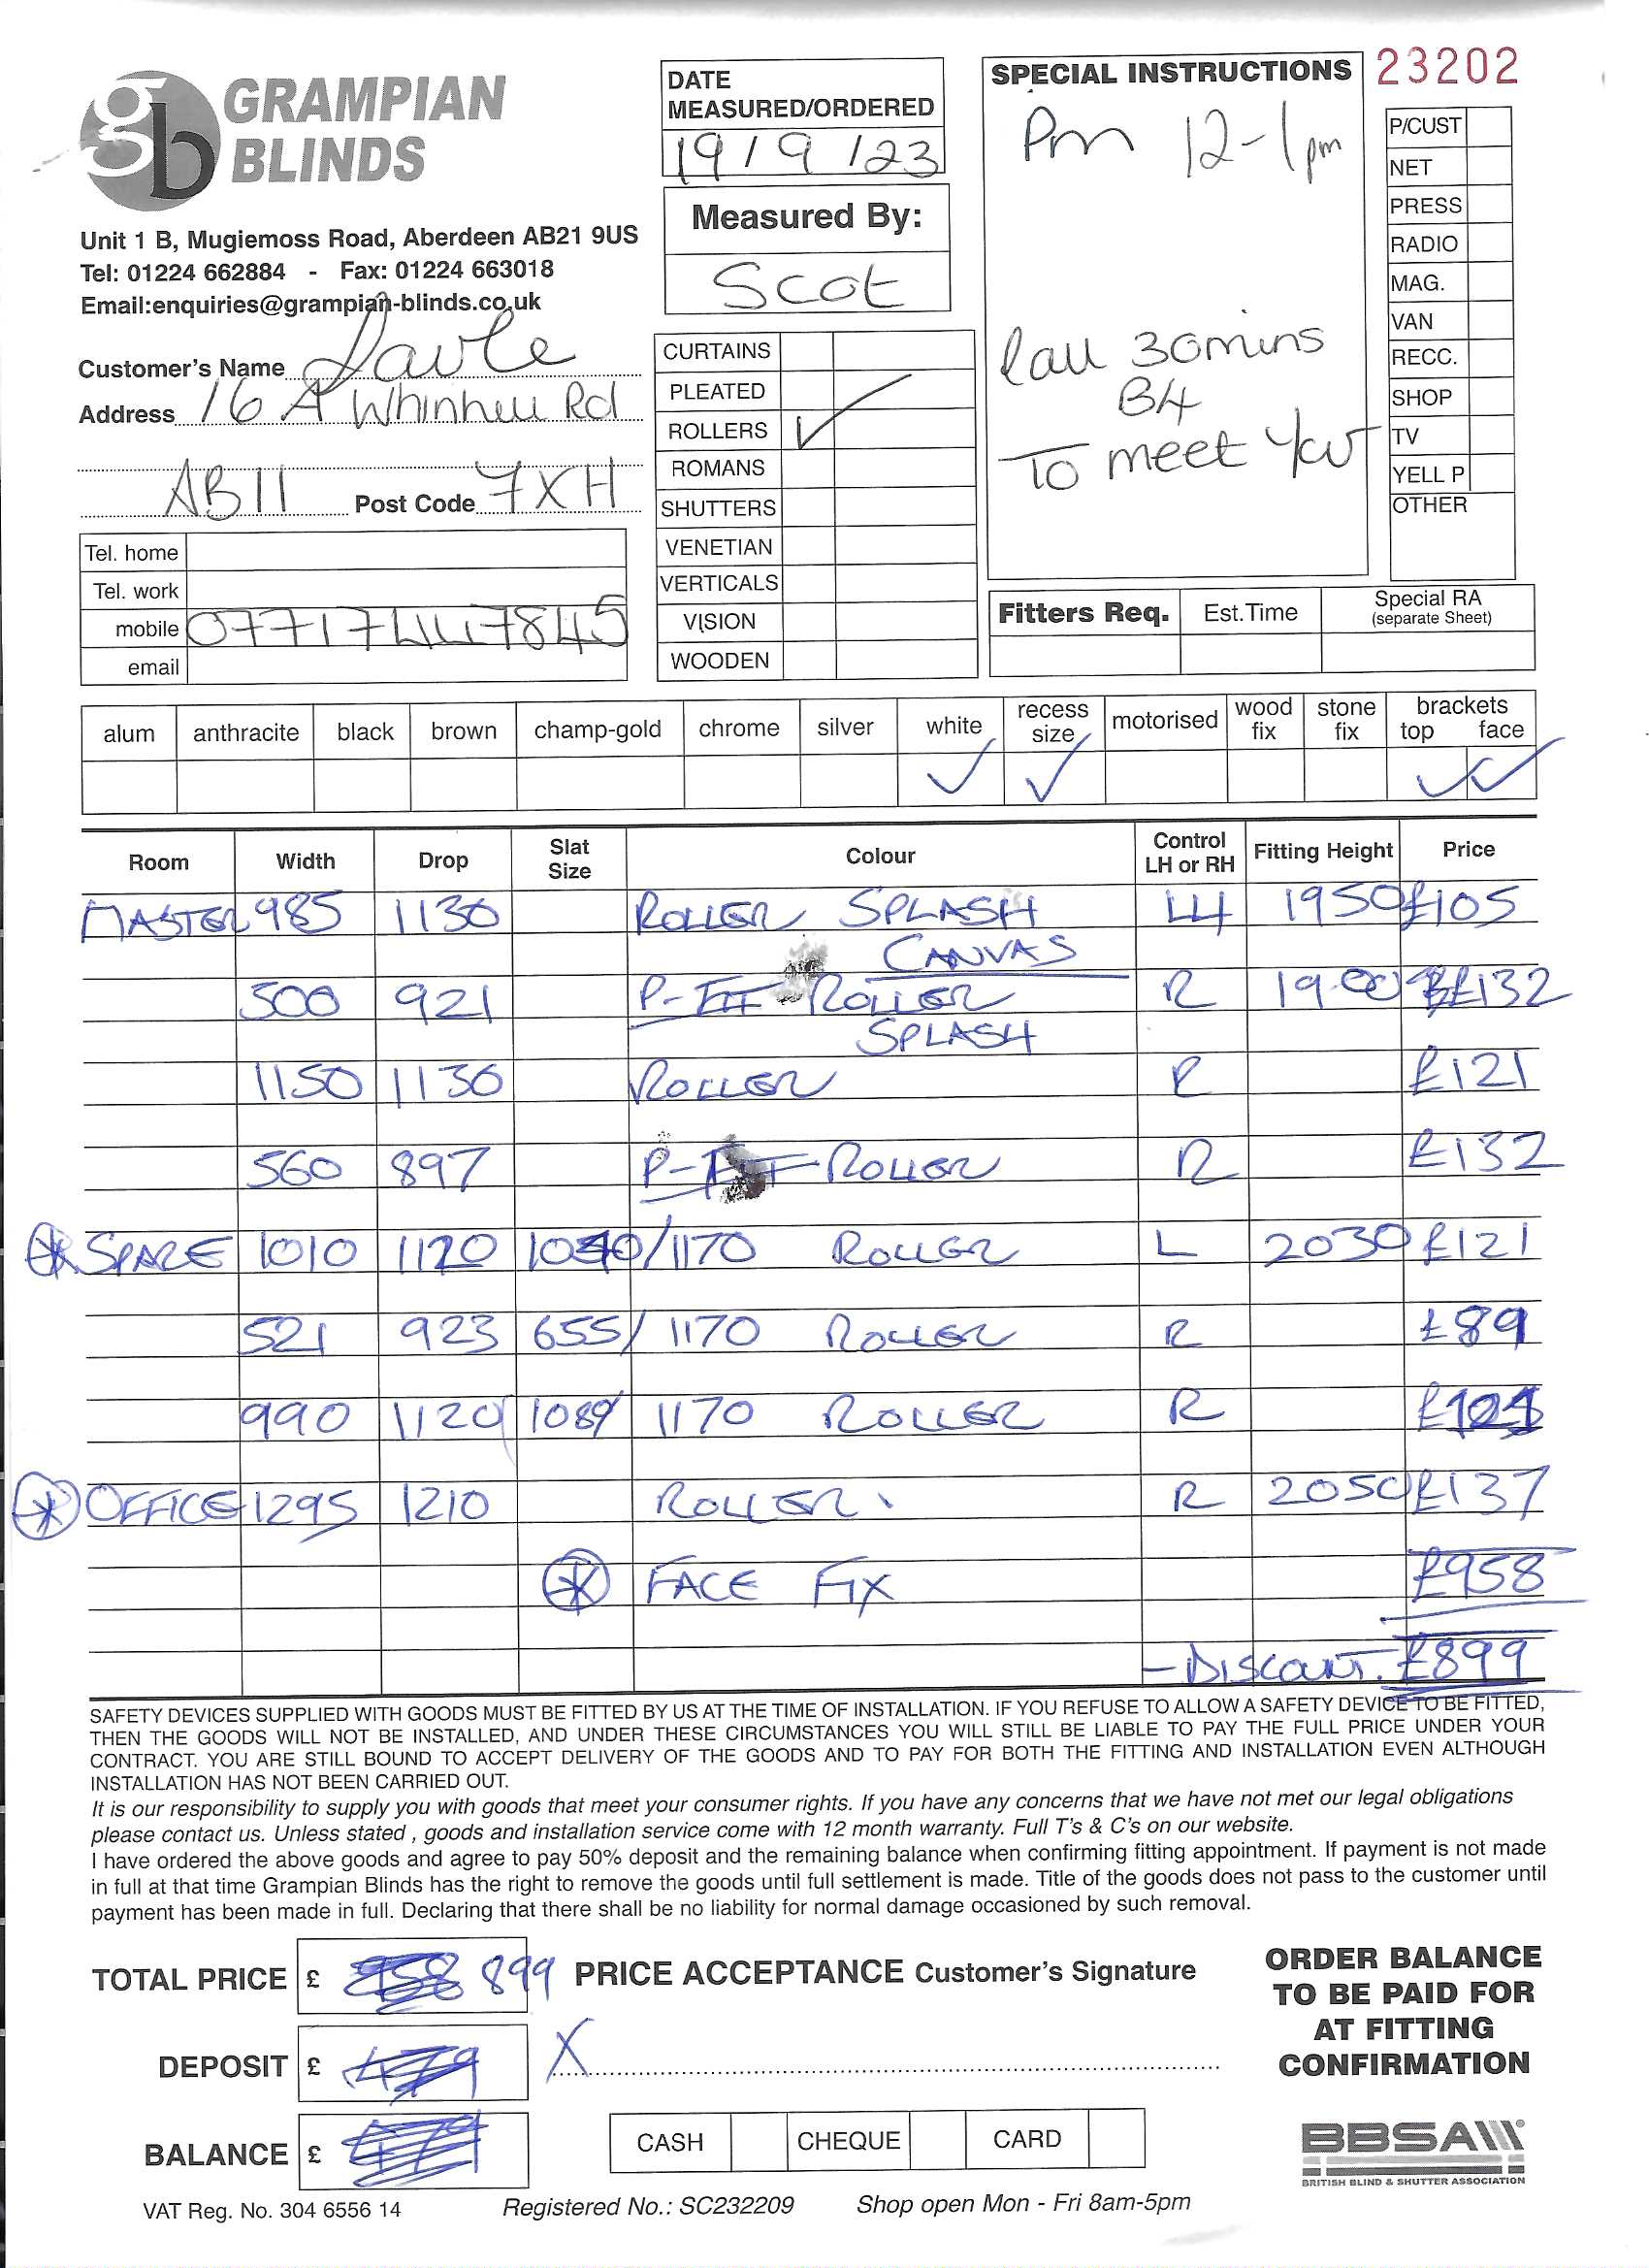 23202
gb GRAMPIAN
BLINDS
Unit 1 B, Mugiemoss Road, Aberdeen AB21 9US
Tel: 01224 662884 - Fax: 01224 663018
Email:enquiries@grampian-blinds.co.uk
Customer's Name
Address 16 A Whinhill Rd
AB11 Post Code 7XH
Tel. home
Tel. work
mobile
email
DATE
MEASURED/ORDERED
19/9/23
Measured By:
Scot
CURTAINS
PLEATED
ROLLERS ✓
ROMANS
SHUTTERS
VENETIAN
VERTICALS
VISION
WOODEN
SPECIAL INSTRUCTIONS
Pm 12-1pm
Call 30mins
B4
To meet
P/CUST
NET
PRESS
RADIO
MAG.
VAN
RECC.
SHOP
TV
YELL P
OTHER
Fitters Req. Est.Time Special RA
(separate Sheet)
alum anthracite black brown champ-gold chrome silver white recess size motorised wood fix stone fix brackets top face
✓ ✓ ✓ ✓
Room Width Drop Slat Size Colour Control LH or RH Fitting Height Price
MASTER 985 1130 ROLLER SPLASH LH 1950 £105
CANVAS
500 921 P-FIT ROLLER R 1900 £132
SPLASH
1150 1130 ROLLER R £121
560 897 P-FIT ROLLER R £132
* SPARE 1010 1120 1040/1170 ROLLER L 2030 £121
521 923 655/1170 ROLLER R £89
990 1120 1089/1170 ROLLER R
* OFFICE 1295 1210 ROLLER R 2050 £137
* FACE FIX £958
- DISCOUNT. £899
SAFETY DEVICES SUPPLIED WITH GOODS MUST BE FITTED BY US AT THE TIME OF INSTALLATION. IF YOU REFUSE TO ALLOW A SAFETY DEVICE TO BE FITTED,
THEN THE GOODS WILL NOT BE INSTALLED, AND UNDER THESE CIRCUMSTANCES YOU WILL STILL BE LIABLE TO PAY THE FULL PRICE UNDER YOUR
CONTRACT. YOU ARE STILL BOUND TO ACCEPT DELIVERY OF THE GOODS AND TO PAY FOR BOTH THE FITTING AND INSTALLATION EVEN ALTHOUGH
INSTALLATION HAS NOT BEEN CARRIED OUT.
It is our responsibility to supply you with goods that meet your consumer rights. If you have any concerns that we have not met our legal obligations
please contact us. Unless stated , goods and installation service come with 12 month warranty. Full T's & C's on our website.
I have ordered the above goods and agree to pay 50% deposit and the remaining balance when confirming fitting appointment. If payment is not made
in full at that time Grampian Blinds has the right to remove the goods until full settlement is made. Title of the goods does not pass to the customer until
payment has been made in full. Declaring that there shall be no liability for normal damage occasioned by such removal.
TOTAL PRICE £ 958 899 PRICE ACCEPTANCE Customer's Signature
DEPOSIT £ 479 X
BALANCE £ 479
CASH CHEQUE CARD
ORDER BALANCE
TO BE PAID FOR
AT FITTING
CONFIRMATION
BBSA
BRITISH BLIND & SHUTTER ASSOCIATION
VAT Reg. No. 304 6556 14 Registered No.: SC232209 Shop open Mon - Fri 8am-5pm